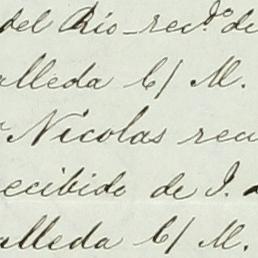 del Rio—rec.do de
alleda C/ M.
Nicolas reci
ecibido de J.
alleda C/ M.